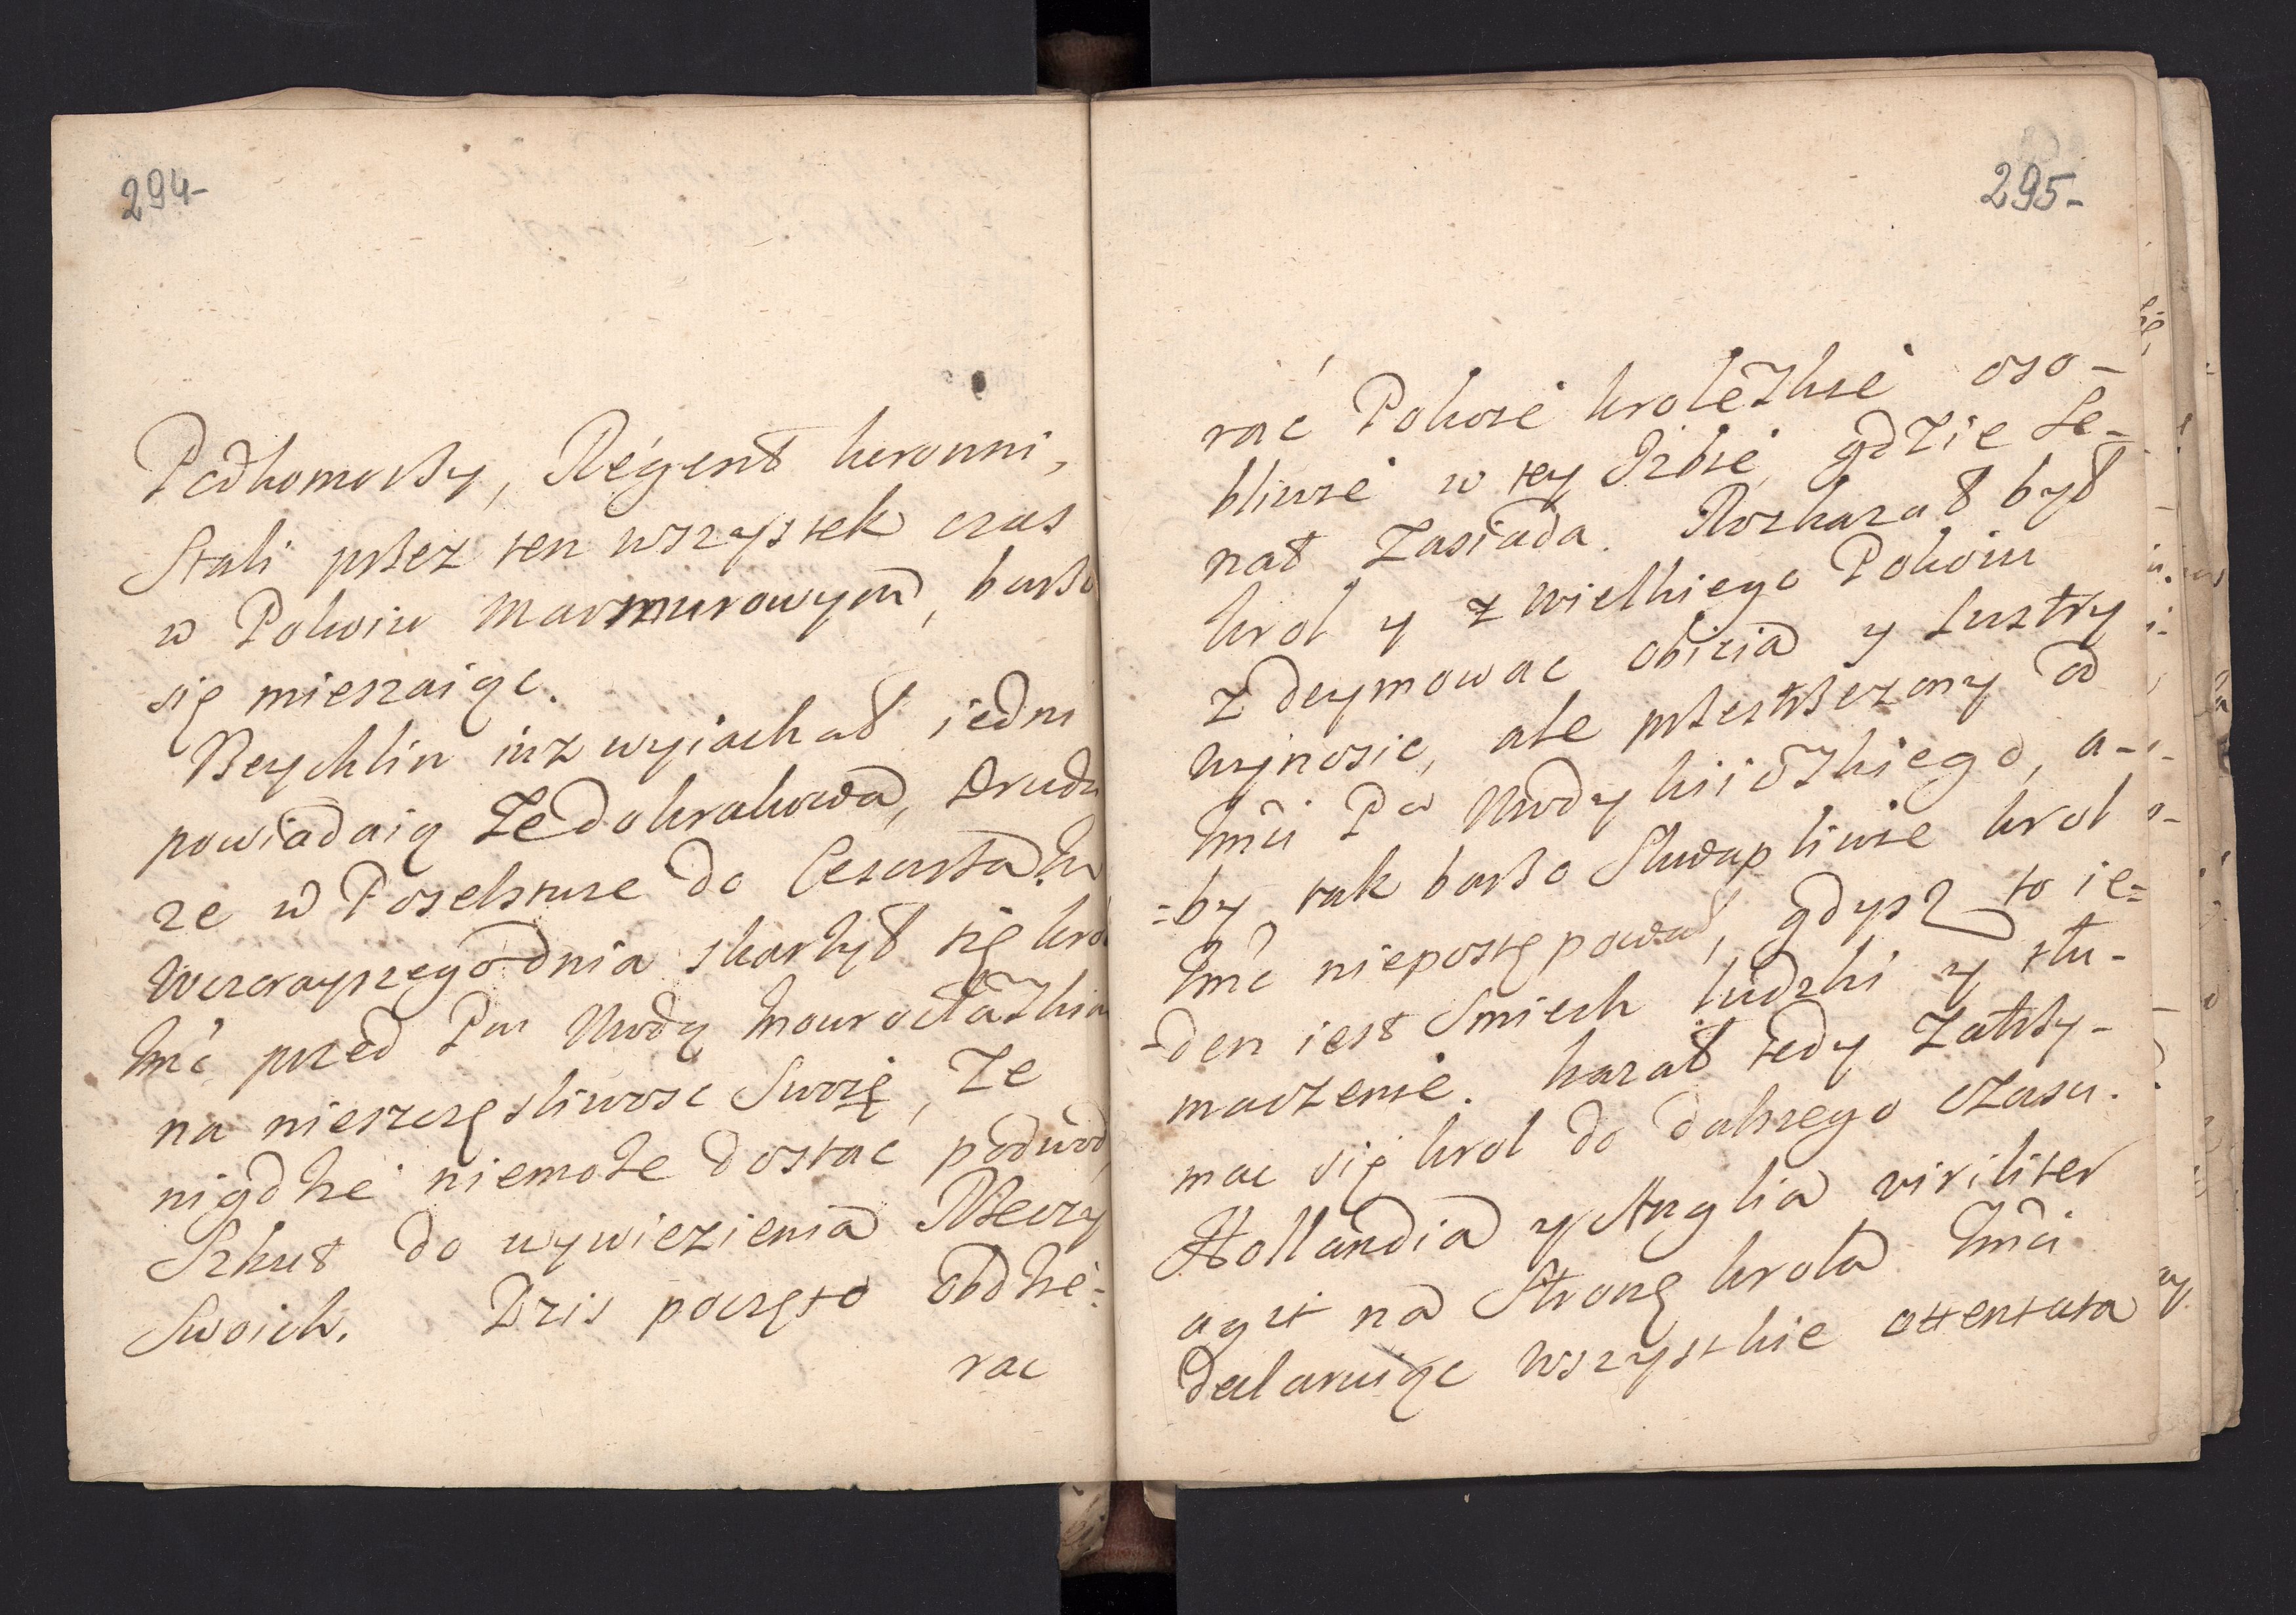 294-
Podkomorzy, Regent koronni,
Stali przez ten wszystek czas
w Pokoiu Marmurowym, barzo
się mieszaiąc.
Reychlin iuż wyiachał iedni
powiadaią że do krakowa, drudzy
ze w Poselstwie do Cesarza.
Wczorayszego dnia skarżył się krol
Imć przed Pan Wwodą Inowrocławskim
na nieszczęsliwosc Swoię, że
nigdzie niemoże dostać podwod,
Szkut do wywiezienia Rzeczy
Swoich. Dzis poczęto obdzie-
rac
295-
rać Pokoie krolewskie oso-
bliwie w tey Izbie, gdzie Se-
nat zasiada. Rozkazał był
krol y z wielkiego Pokoiu
zdeymowac obicia y Lustry
wynosic, ale przestrzezony od
Imci Pa Wwody kiiowskiego, a-
=by tak barzo Skwapliwie krol
Imć niepostępował, gdysz to ie=
-den iest Smiech ludzki y tłu-
maczenie. kazał tedy zatrzy-
mac się krol do dalszego czasu.
Hollandia y Anglia viriliter
agit na Stronę krola Imci
declaruiąc wszystkie attentata